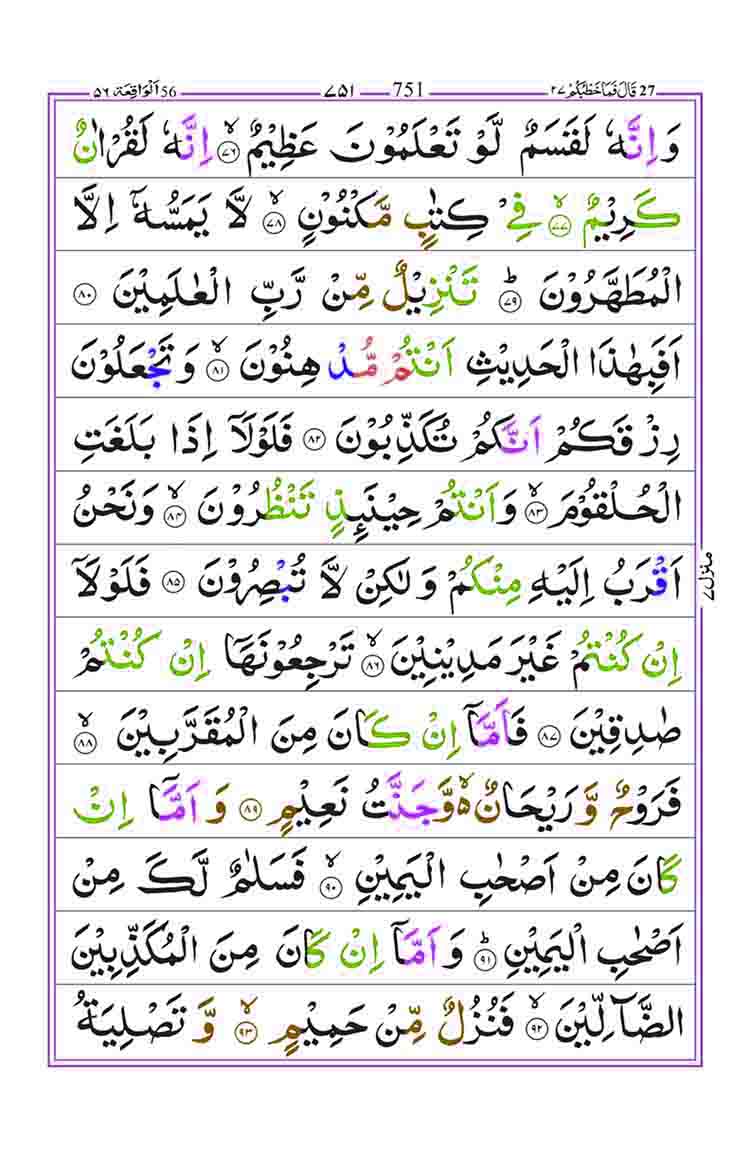 27 قَالَ فَمَا خَطْبُكُمْ ٢٧ 751 ٧٥١ 56 اَلْوَاقِعَة ٥٦
وَاِنَّهٗ لَقَسَمٌ لَّوْ تَعْلَمُوْنَ عَظِیْمٌ ۙ﴿۷۶﴾ اِنَّهٗ لَقُرْاٰنٌ
كَرِیْمٌ ۙ﴿۷۷﴾ فِیْ كِتٰبٍ مَّكْنُوْنٍ ۙ﴿۷۸﴾ لَّا یَمَسُّهٗۤ اِلَّا
الْمُطَهَّرُوْنَ ؕ﴿۷۹﴾ تَنْزِیْلٌ مِّنْ رَّبِّ الْعٰلَمِیْنَ ﴿۸۰﴾
اَفَبِهٰذَا الْحَدِیْثِ اَنْتُمْ مُّدْهِنُوْنَ ۙ﴿۸۱﴾ وَتَجْعَلُوْنَ
رِزْقَكُمْ اَنَّكُمْ تُكَذِّبُوْنَ ﴿۸۲﴾ فَلَوْلَاۤ اِذَا بَلَغَتِ
الْحُلْقُوْمَ ۙ﴿۸۳﴾ وَاَنْتُمْ حِیْنَىِٕذٍ تَنْظُرُوْنَ ۙ﴿۸۴﴾ وَنَحْنُ
اَقْرَبُ اِلَیْهِ مِنْكُمْ وَلٰكِنْ لَّا تُبْصِرُوْنَ ﴿۸۵﴾ فَلَوْلَاۤ
اِنْ كُنْتُمْ غَیْرَ مَدِیْنِیْنَ ۙ﴿۸۶﴾ تَرْجِعُوْنَهَاۤ اِنْ كُنْتُمْ
صٰدِقِیْنَ ﴿۸۷﴾ فَاَمَّاۤ اِنْ كَانَ مِنَ الْمُقَرَّبِیْنَ ۙ﴿۸۸﴾
فَرَوْحٌ وَّرَیْحَانٌ ۙ۬ وَّجَنَّتُ نَعِیْمٍ ﴿۸۹﴾ وَاَمَّاۤ اِنْ
كَانَ مِنْ اَصْحٰبِ الْیَمِیْنِ ۙ﴿۹۰﴾ فَسَلٰمٌ لَّكَ مِنْ
اَصْحٰبِ الْیَمِیْنِ ؕ﴿۹۱﴾ وَاَمَّاۤ اِنْ كَانَ مِنَ الْمُكَذِّبِیْنَ
الضَّآلِّیْنَ ۙ﴿۹۲﴾ فَنُزُلٌ مِّنْ حَمِیْمٍ ۙ﴿۹۳﴾ وَّتَصْلِیَةُ
منزل ٧